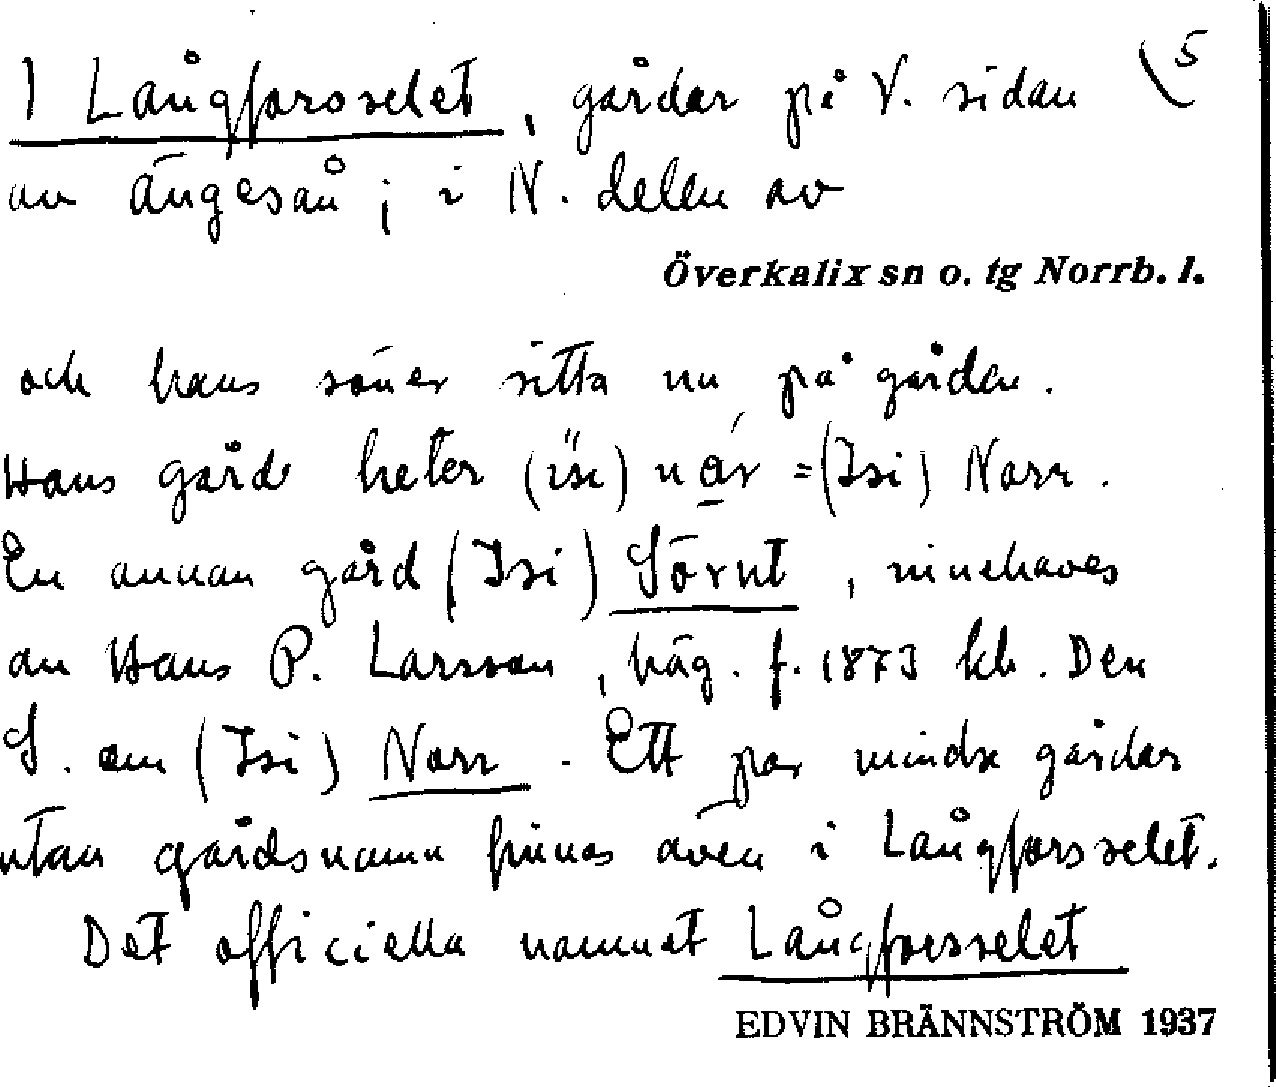 1 Långforsselet, gårdar på V. sidan 5
av Ängesån; i N. delen av
Överkalix sn o. tg Norrb. l.
och hans söner sitta nu på gården.
Hans gård heter = (Isi) Norr.
En annan gård (Isi) Sörnt, innehaves
av Hans P. Larsson, häg. f. 1873 kb. Den
S. om (Isi) Norr. Ett par mindre gårdar
utan gårdsnamn finnas även i Långforsselet.
Det officiella namnet Långforsselet
EDVIN BRÄNNSTRÖM 1937